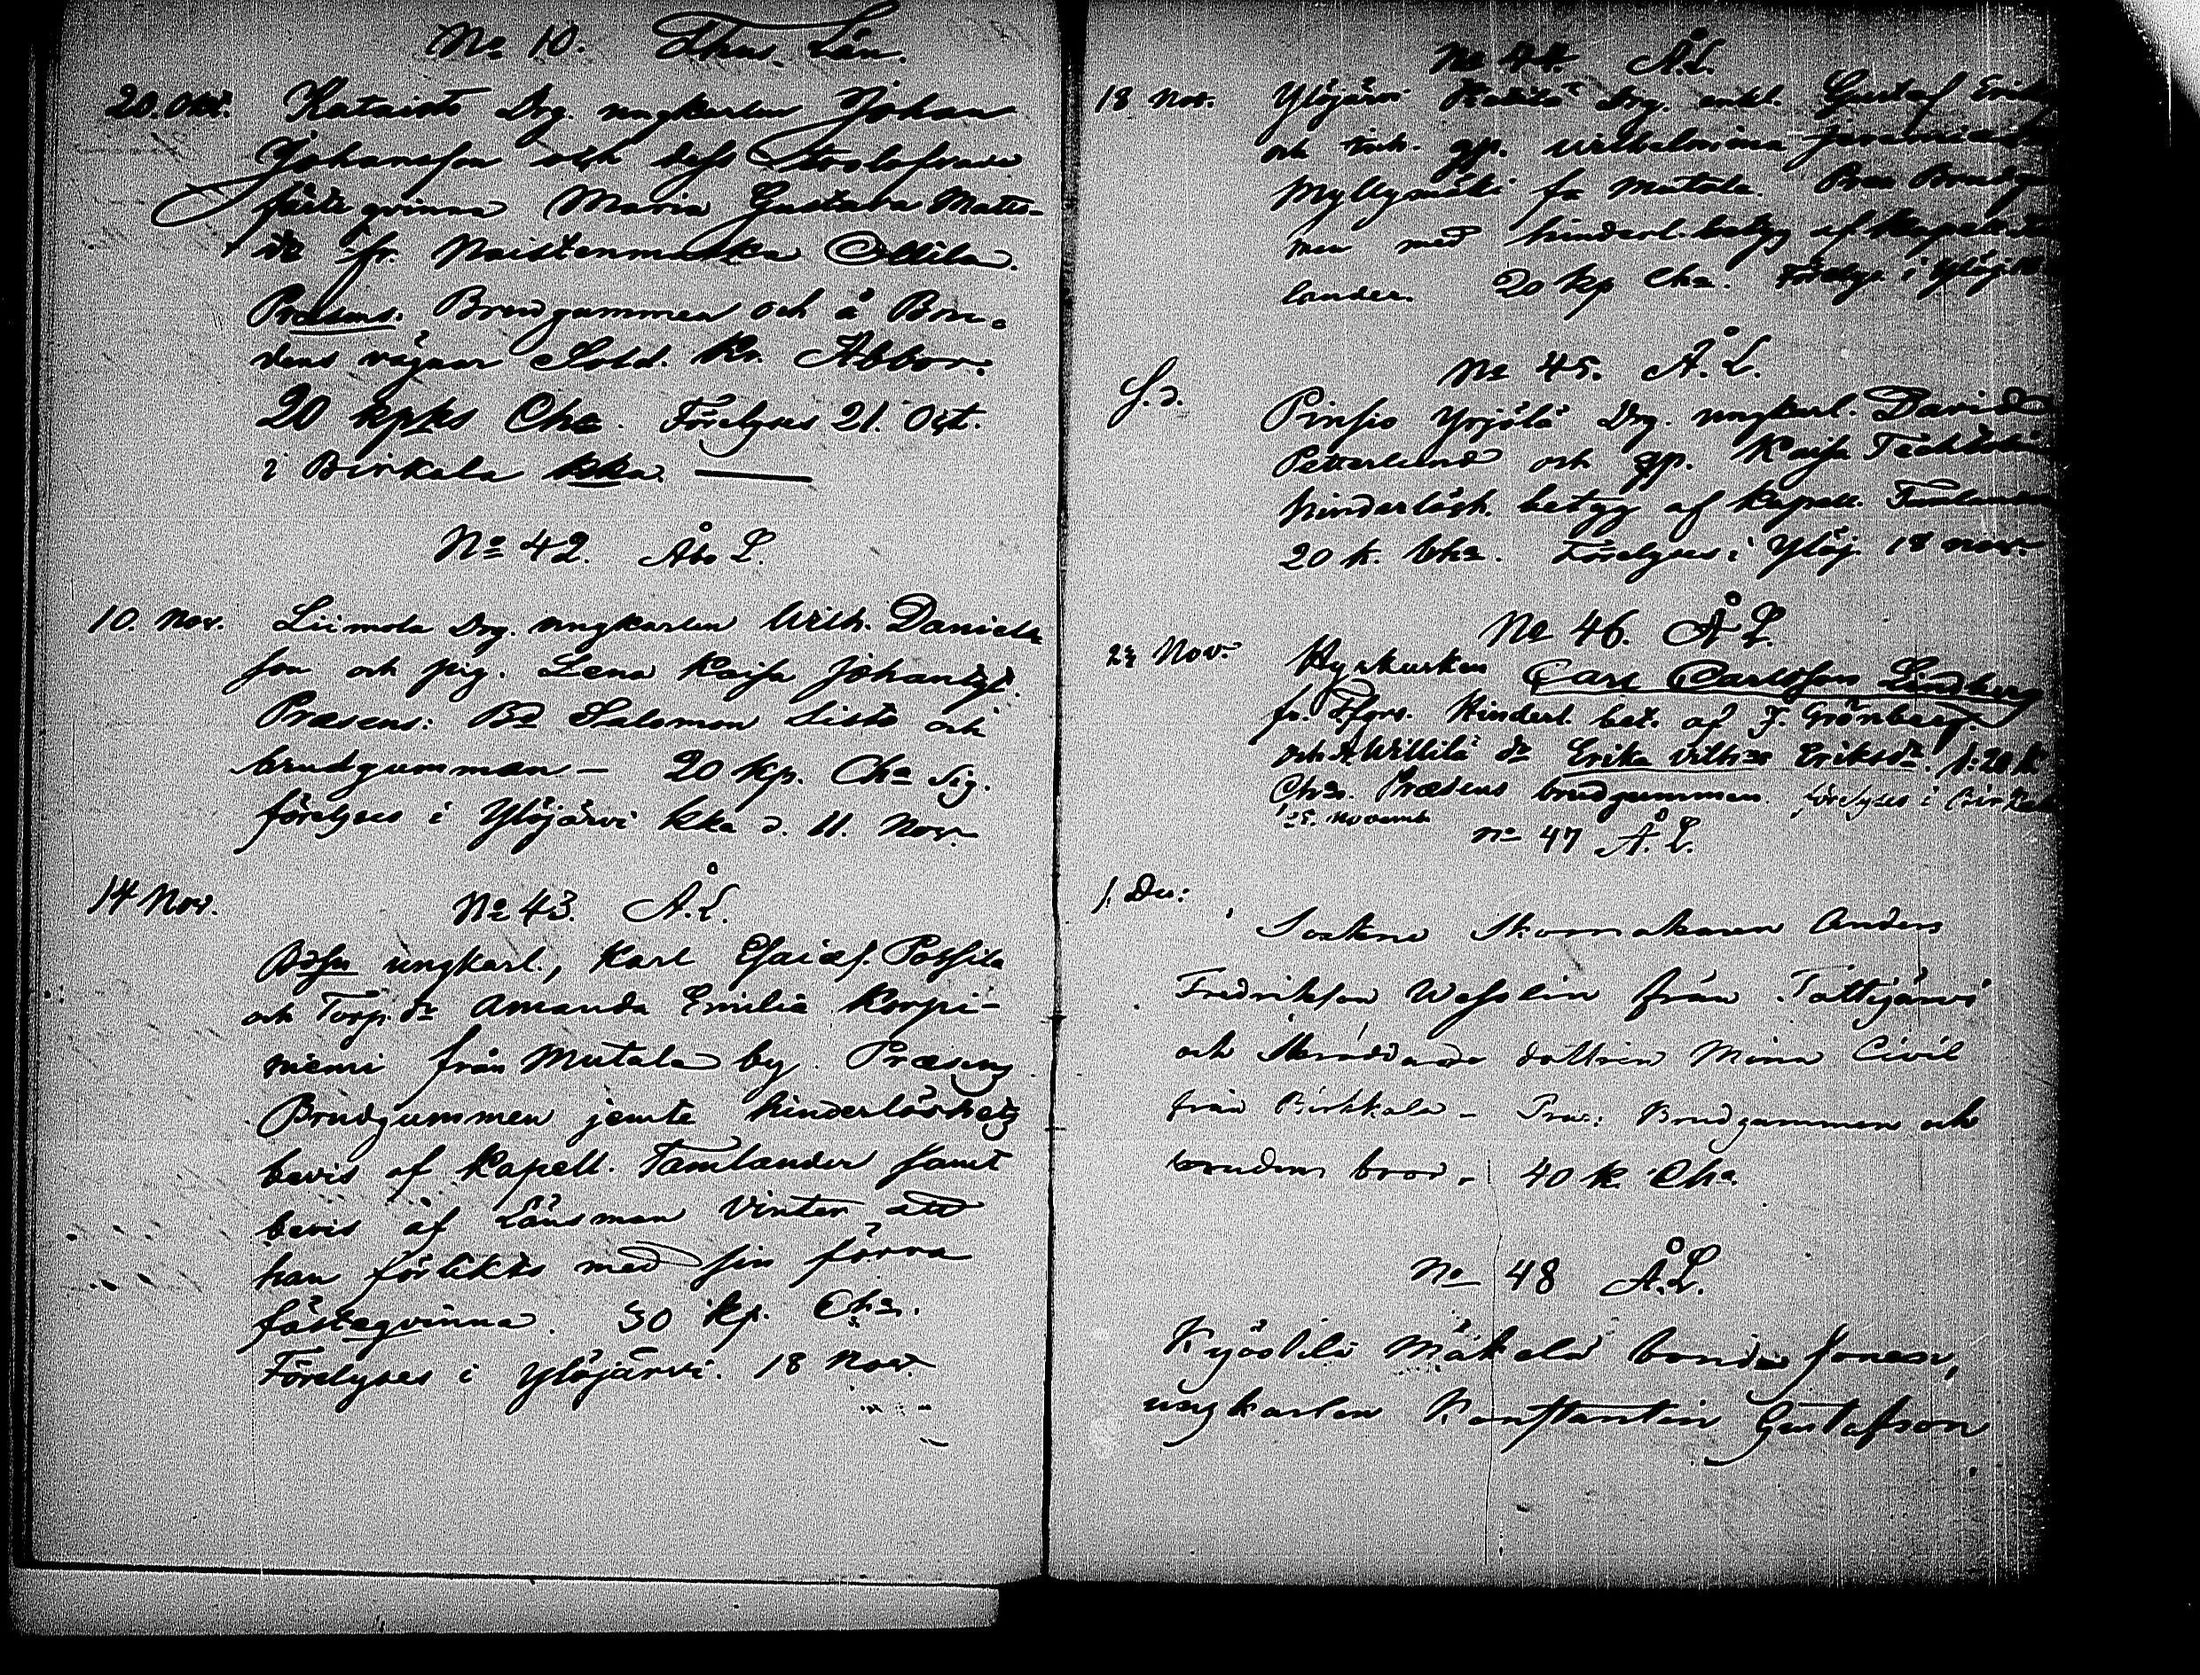 No 10. Thus. Län.
20. Oct. Kataisto Drg. ungkarlen Johan
Johansson och dess
fästeqvinna Maria Gustava Matts-
dr fr. Naistenmatka Ollila.
Præsens. Brudgummen och å Bru-
dens vägnar Sold. Kr. Abbor.
20 kpks Cha. Förelyses 21. Oct.
i Birkala kka.
No 42. Åbo L.
10. Nov. Liimola Drg. ungkarlen Wilh. Daniels
son och pig. Lena Kaisa Johansd.
Præsens: Bd Salomon Sisto och
brudgumman – 20 kp. Cha Sig.
förelyses i Ylöjärvi kka d. 11. Nov.
14 Nov. No 43. Å.L.
Bdsn ungkarl., Karl Esaias. Potsila
och Torp. dr Amanda Emilia Korpi-
niemi från Mutala by. Præsens
Brudgummen jemte hinderlöshets
bevis af Kapell. Tamlander samt
bevis af Länsman Vinter att
han förlikts med sin förra
fästeqvinna. 30 kp. Cha.
Förelyses i Ylöjärvi. 18 Nov.
No 44. Å.L.
18 Nov. Ylöjärvi Drg. enkl. Gustaf
och inh. gp. Wilhelmina
Myllymäki fr Mutala. Præs
men med hinderl. betyg af Kapell.
lander. 20 kp Cha. Förelys. i Ylöj.
No 45. Å.L.
S.d. Pinsio Yrjölä Drg. ungkarl. David
Petterlund och gp. Kaisa
hinderlösh. betyg af Kapell.
20 k. Cha. Förelyses i Ylöj. 18 Nov.
No 46. Å L.
23 Nov. Hyrkusken Carl Carlsson Lindberg
fr. Hinderl. bet. af F. Grönberg
och A Willilä dr Erika Vilh:a Eriksdr. 20 k
Cha. Præsens brudgummen. förelyses i
25. novemb No 47 Å.L.
1. Dec: Sockne Skomakaren Anders
Fredriksson Wesslin från Tottijärvi
och Skräddare dottren Mina Civil
från Birkkala – Præs: Brudgummen och
brudens bror. 40 k Cha.
No 48 Å.L.
Kyöstilä Mäkelä bonde sonen,
ungkarlen Konstantin Gustafsson